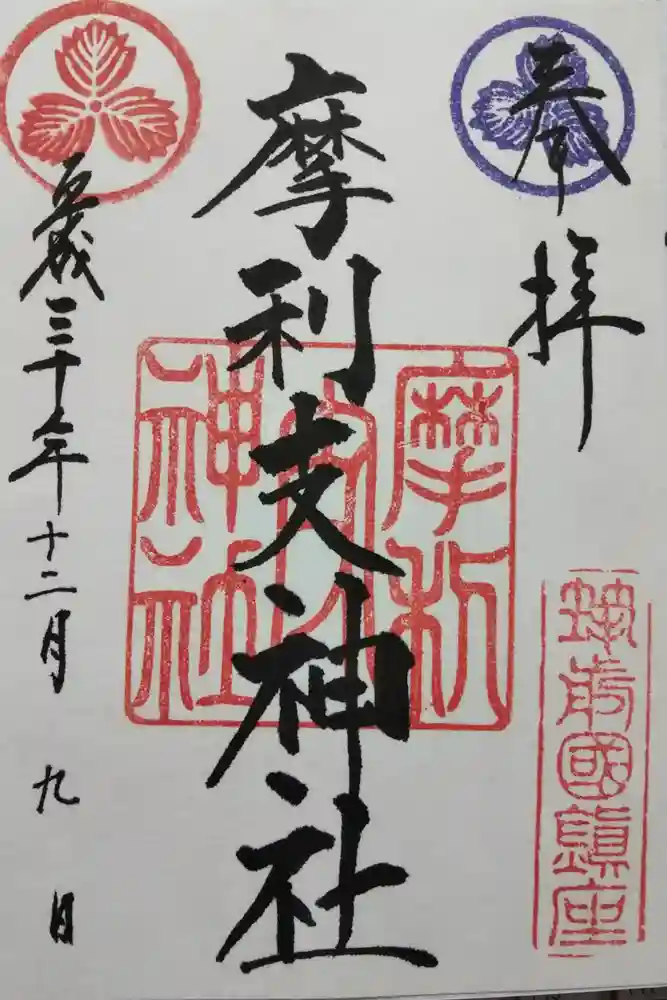 奉拝
筑前國鎮座
摩利支神社
摩利支神社
平成三十年十二月九日